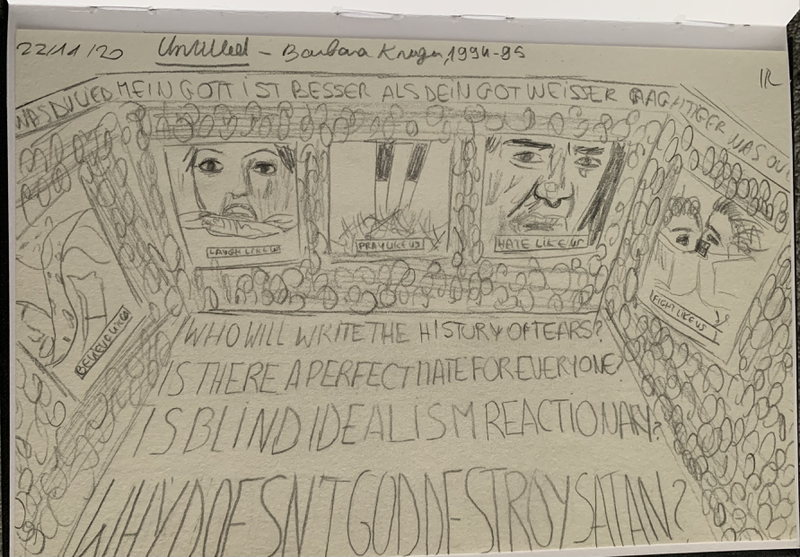 22/11/20 Untitled – Barbara Kruger, 1994-95
IR
WAS DU MEIN GOTT IST BESSER ALS DEIN GOT WEISSER WAS DU
LAUGH LIKE US
PRAY LIKE US
HATE LIKE US
FIGHT LIKE US
BELIEVE LIKE US
WHO WILL WRITE THE HISTORY OF TEARS?
IS THERE A PERFECT HATE FOR EVERYONE
IS BLIND IDEALISM REACTIONARY?
WHY DOESN'T GOD DESTROY SATAN?